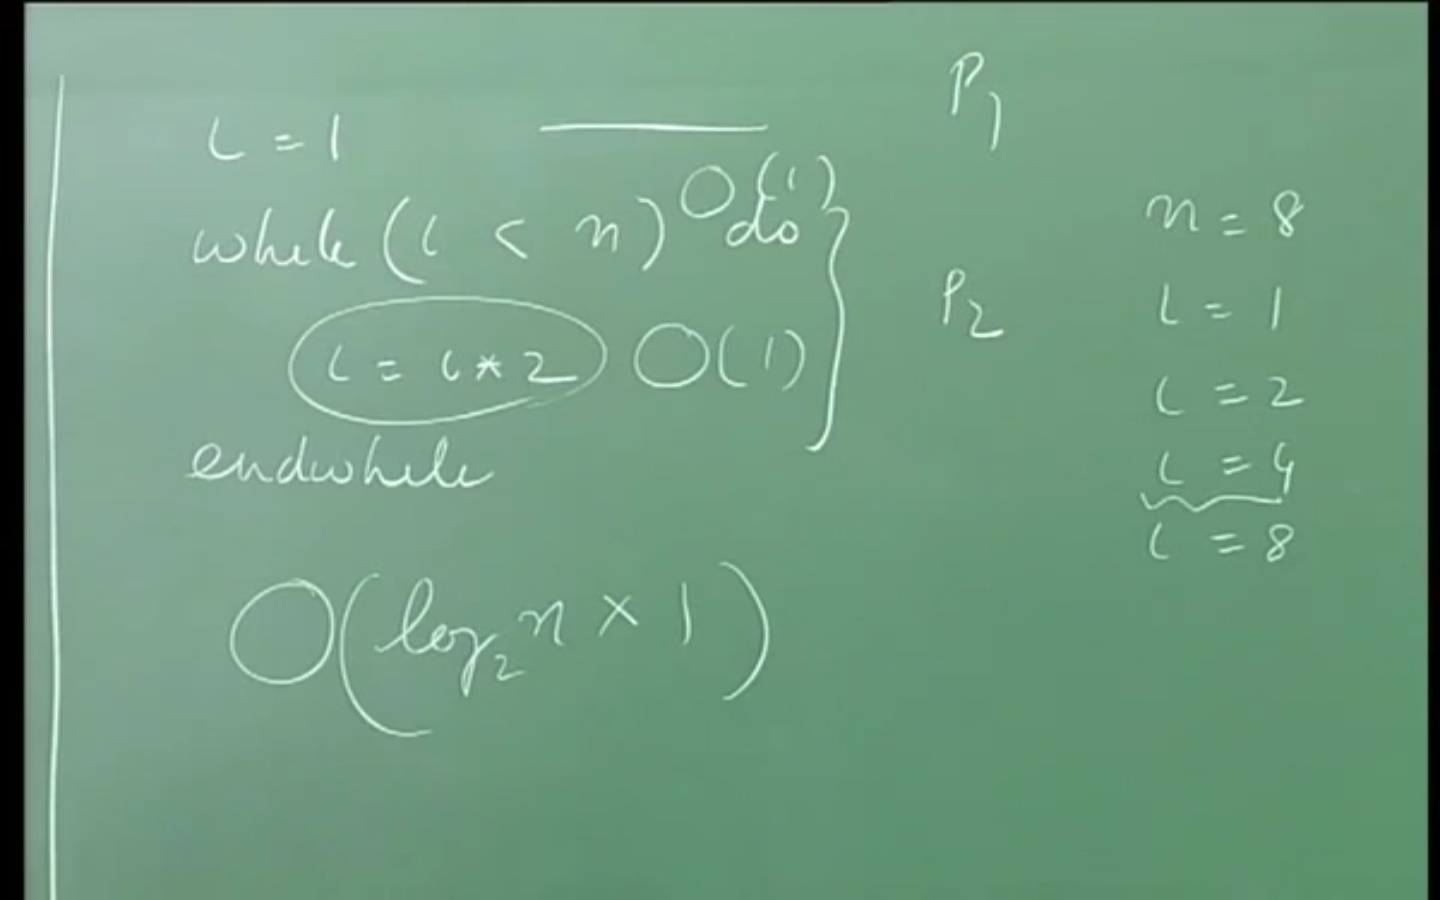 i = 1
O(1)
while (i < n) do
i = i * 2 O(1)
endwhile
O(log₂n × 1)
P₁
P₂
n = 8
i = 1
i = 2
i = 4
i = 8